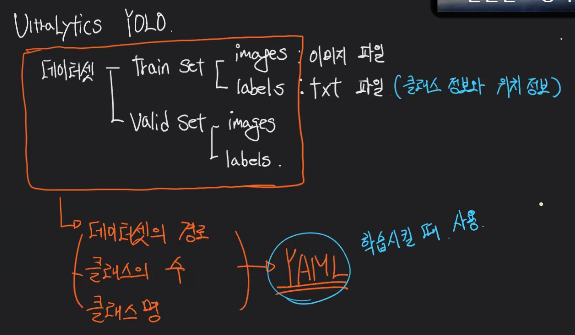 Ultralytics YOLO.
데이터셋 Train set images : 이미지 파일
labels : txt 파일 (클래스 정보와 위치 정보)
Valid set images
labels.
데이터셋의 경로
클래스의 수
클래스명
YAML
학습시킬 때 사용.